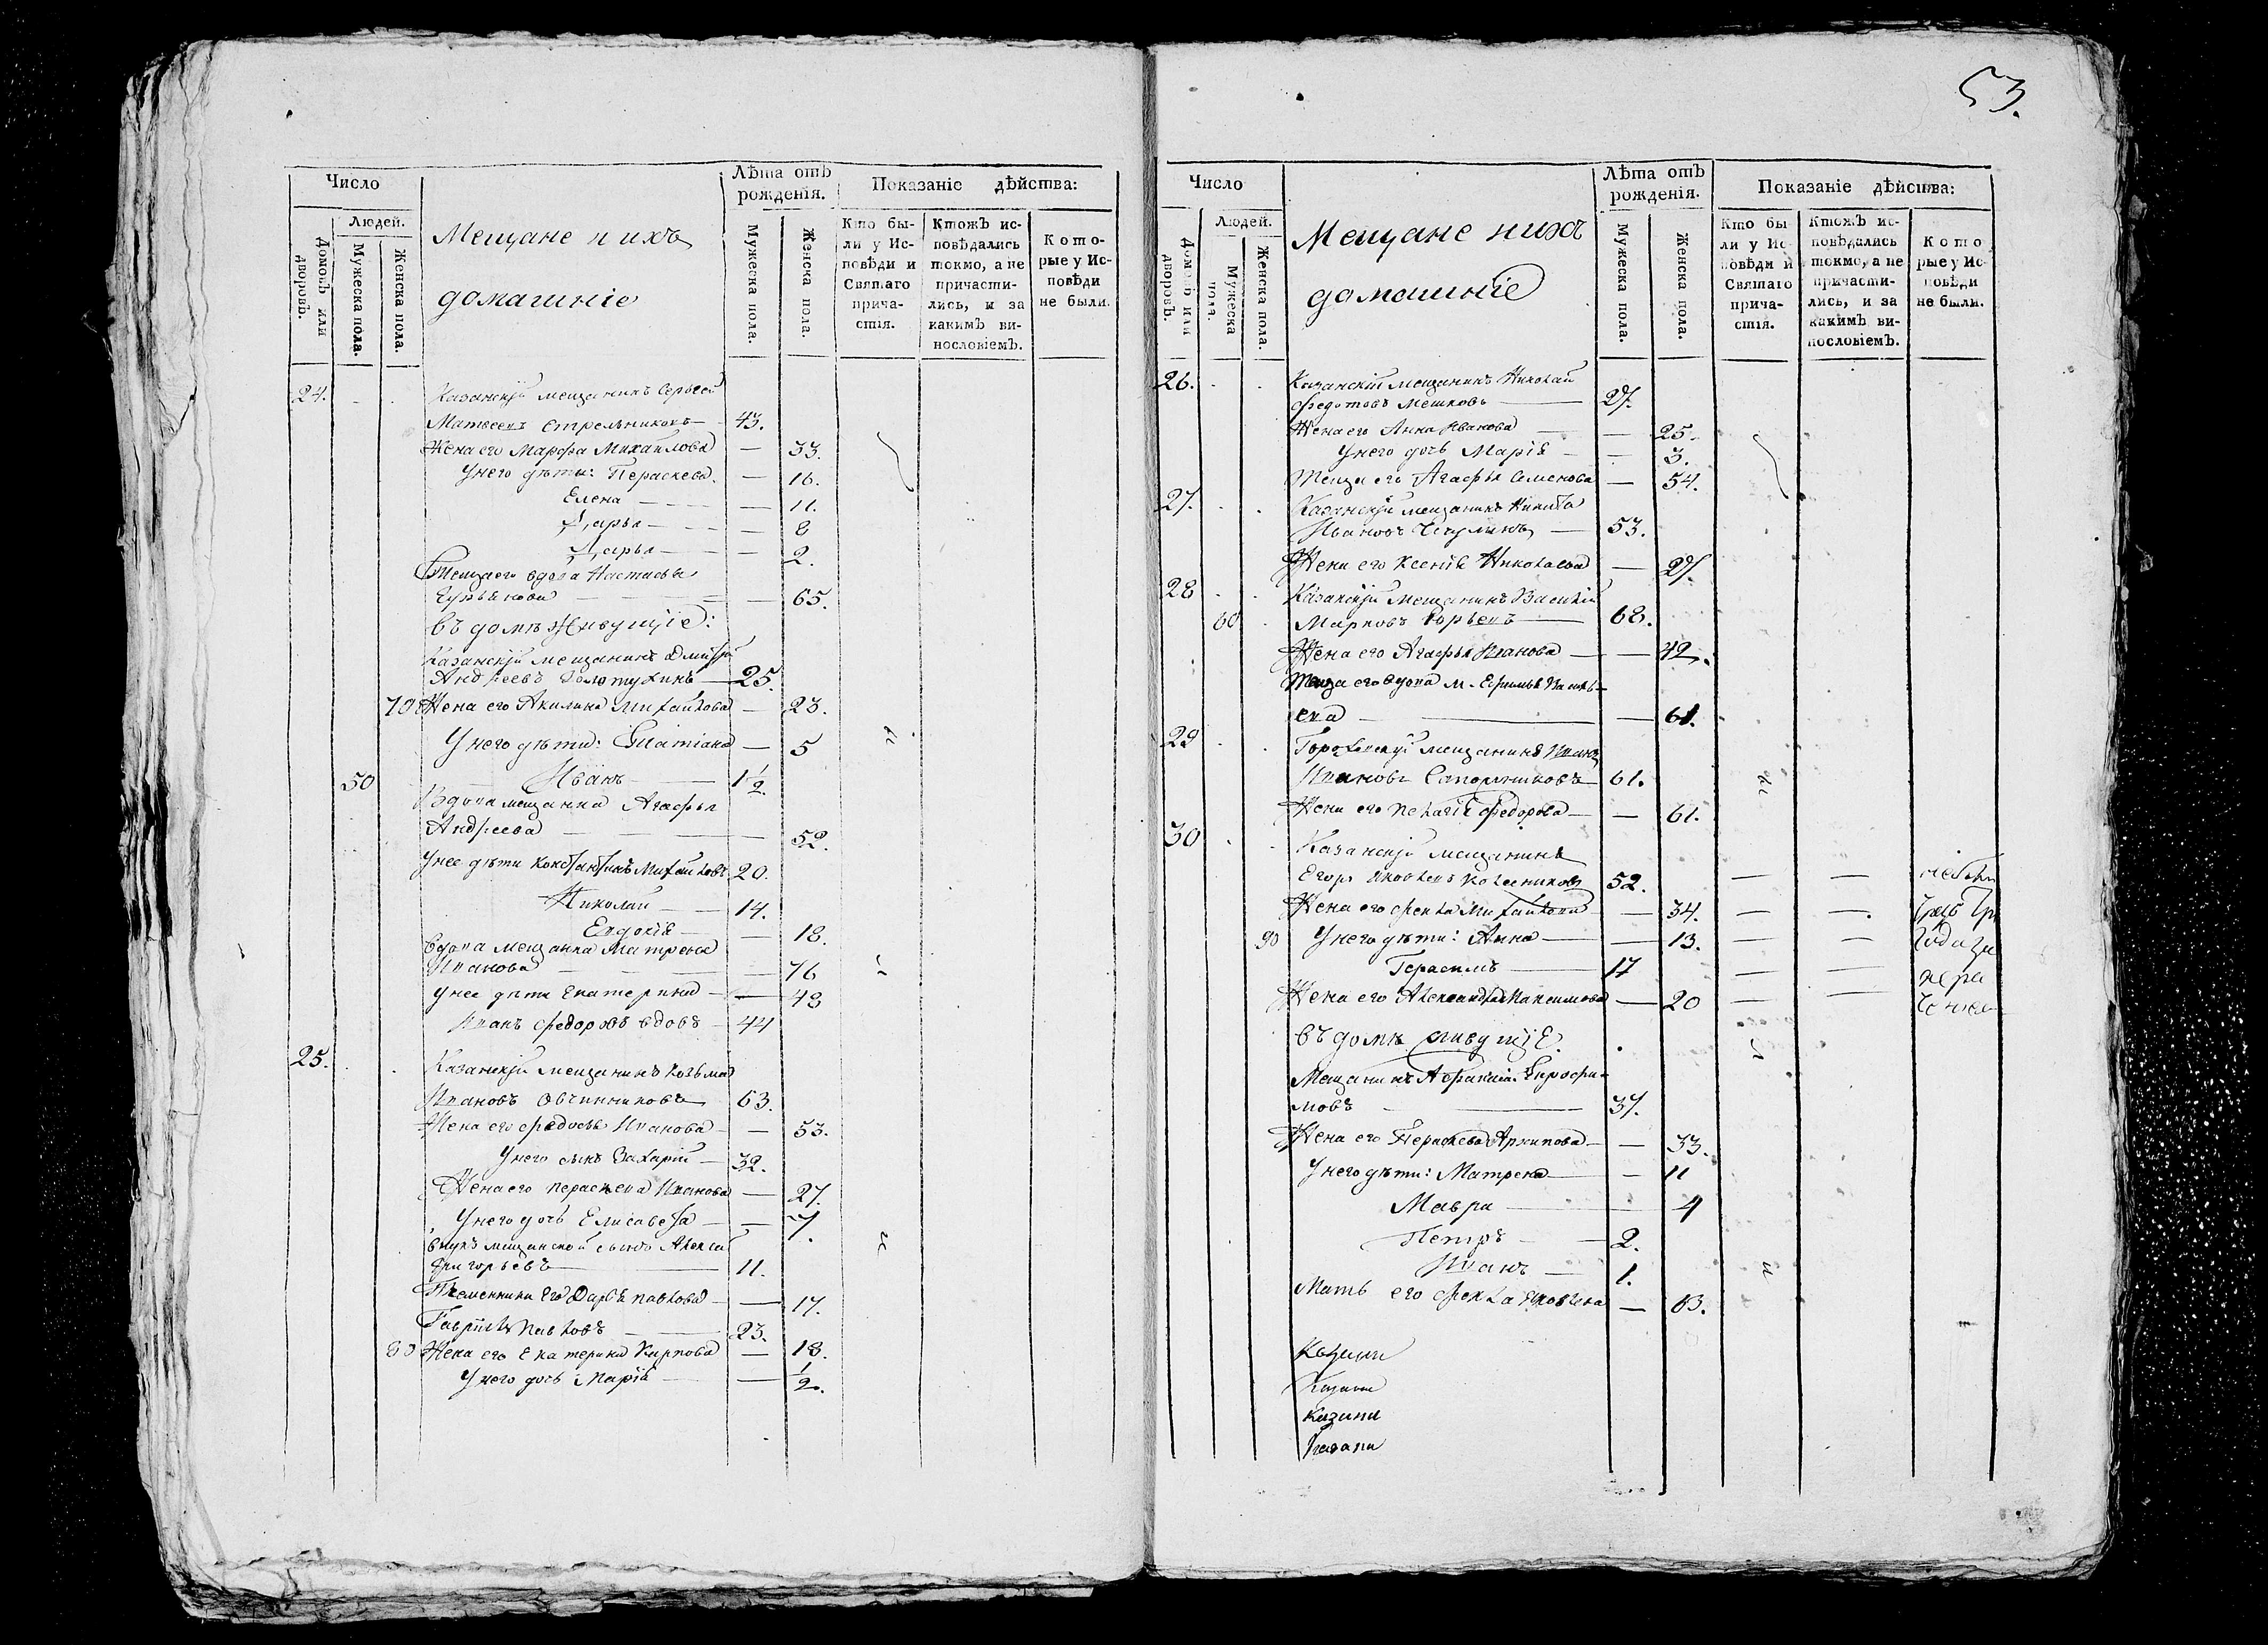 53.
Число
Лѣта отъ рожденія.
Показаніе дѣйства:
Домовъ или дворовъ.
Людей.
Мужеска пола.
Женска пола.
Мещане и ихъ
домашніе
Мужеска пола.
Женска пола.
Кто бы-
ли у Ис-
повѣди и
Святаго
прича-
стія.
Ктожъ ис-
повѣдались
токмо, а не
причасти-
лись, и за
какимъ ви-
нословіемъ.
Кото-
рые у Ис-
повѣди
не были.
24. Казанскій мещанинъ Сергей
Матвеевъ Стрельниковъ — 43.
Жена его Марфа Михаилова — 33.
У него дѣти: Параскева. — 16.
Елена — 11.
Дарья — 8
Дарья — 2.
Теща его вдова Настасья
65.
въ домѣ живущіе:
Казанскій мещанинъ Дмитрій
Андреевъ Золотухинъ — 25.
70 Жена его Акилина Михайлова — 23.
У него дѣти: Татіана — 5
50 Иванъ — 1 1/2.
Вдова мещанка Агафья
Андреева — 52.
У нее дѣти Константинъ Михайловъ 20.
Николай — 14.
Евдокія — 18.
Вдова мещанка Матрена
Иванова — 76
У нее дѣти Екатерина — 48
Иванъ Федоровъ вдовъ — 44
25. Казанскій мещанинъ Козьма
Ивановъ Овчинниковъ 63.
Жена его Федосья Иванова — 53.
У него сынъ Захарій — 32.
Жена его Параскева Иванова — 27.
У него дочь Елисавета — 7.
Внукъ мещанской сынъ Алексей
Григорьевъ — 11.
Племянники его Дарья Павлова — 17.
Гаврилъ Павловъ — 23.
80 Жена его Екатерина Карпова — 18.
У него дочь Марія — 1/2.
Число
Лѣта отъ рожденія.
Показаніе дѣйства:
Домовъ или дворовъ.
Людей.
Мужеска пола.
Женска пола.
Мещане и ихъ
домашніе
Мужеска пола.
Женска пола.
Кто бы-
ли у Ис-
повѣди и
Святаго
прича-
стія.
Ктожъ ис-
повѣдались
токмо, а не
причасти-
лись, и за
какимъ ви-
нословіемъ.
Кото-
рые у Ис-
повѣди
не были.
26. Казанскій мещанинъ Николай
Федотовъ Мешковъ — 27.
Жена его Анна Иванова — 25.
У него дочь Марія — 3.
Теща его Агафья Семенова — 54.
27. Казанскій мещанинъ Никита
Ивановъ — 53.
Жена его Ксенія Николаева — 27.
28 Казанскій мещанинъ Василій
60 Марковъ — 68.
Жена его Агафья Иванова — 42.
Теща его вдова м. Ефимья Василь-
ева — 61.
29 мещанинъ Иванъ
Ивановъ Сапожниковъ 61.
Жена его Пелагія Федорова — 61.
30 Казанскій мещанинъ
Егоръ Яковлевъ Колесниковъ 52. — — небы
Жена его Фекла Михайлова — 34. — —
90 У него дѣти: Анна — 13. — —
Герасимъ — 17 — —
Жена его Александра Максимова — 20 — —
въ домѣ живущіе.
Мещанинъ Ефрофи-
мовъ — 37.
Жена его Параскева Архипова — 33.
У него дѣти: Матрена — 11
Мавра — 4
Петръ — 2.
Иванъ — 1.
Мать его Фекла Яковлева — 63.
Казани
Казани
Казани